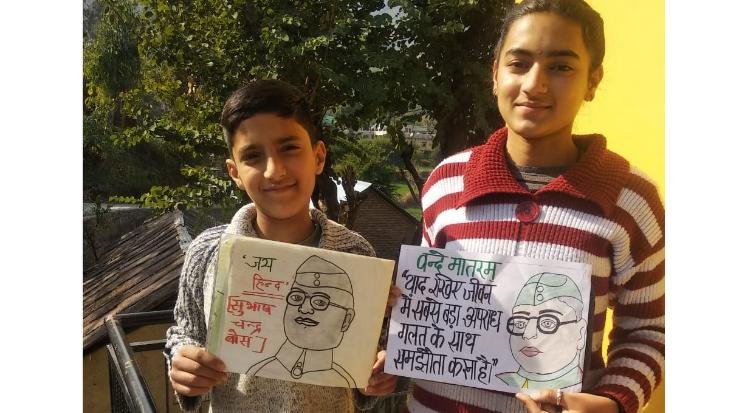 'जय
हिन्द'
[सुभाष
चन्द्र
बोस]
वन्दे मातरम
"याद रखिए जीवन
में सबसे बड़ा अपराध
गलत के साथ
समझौता करना है।"